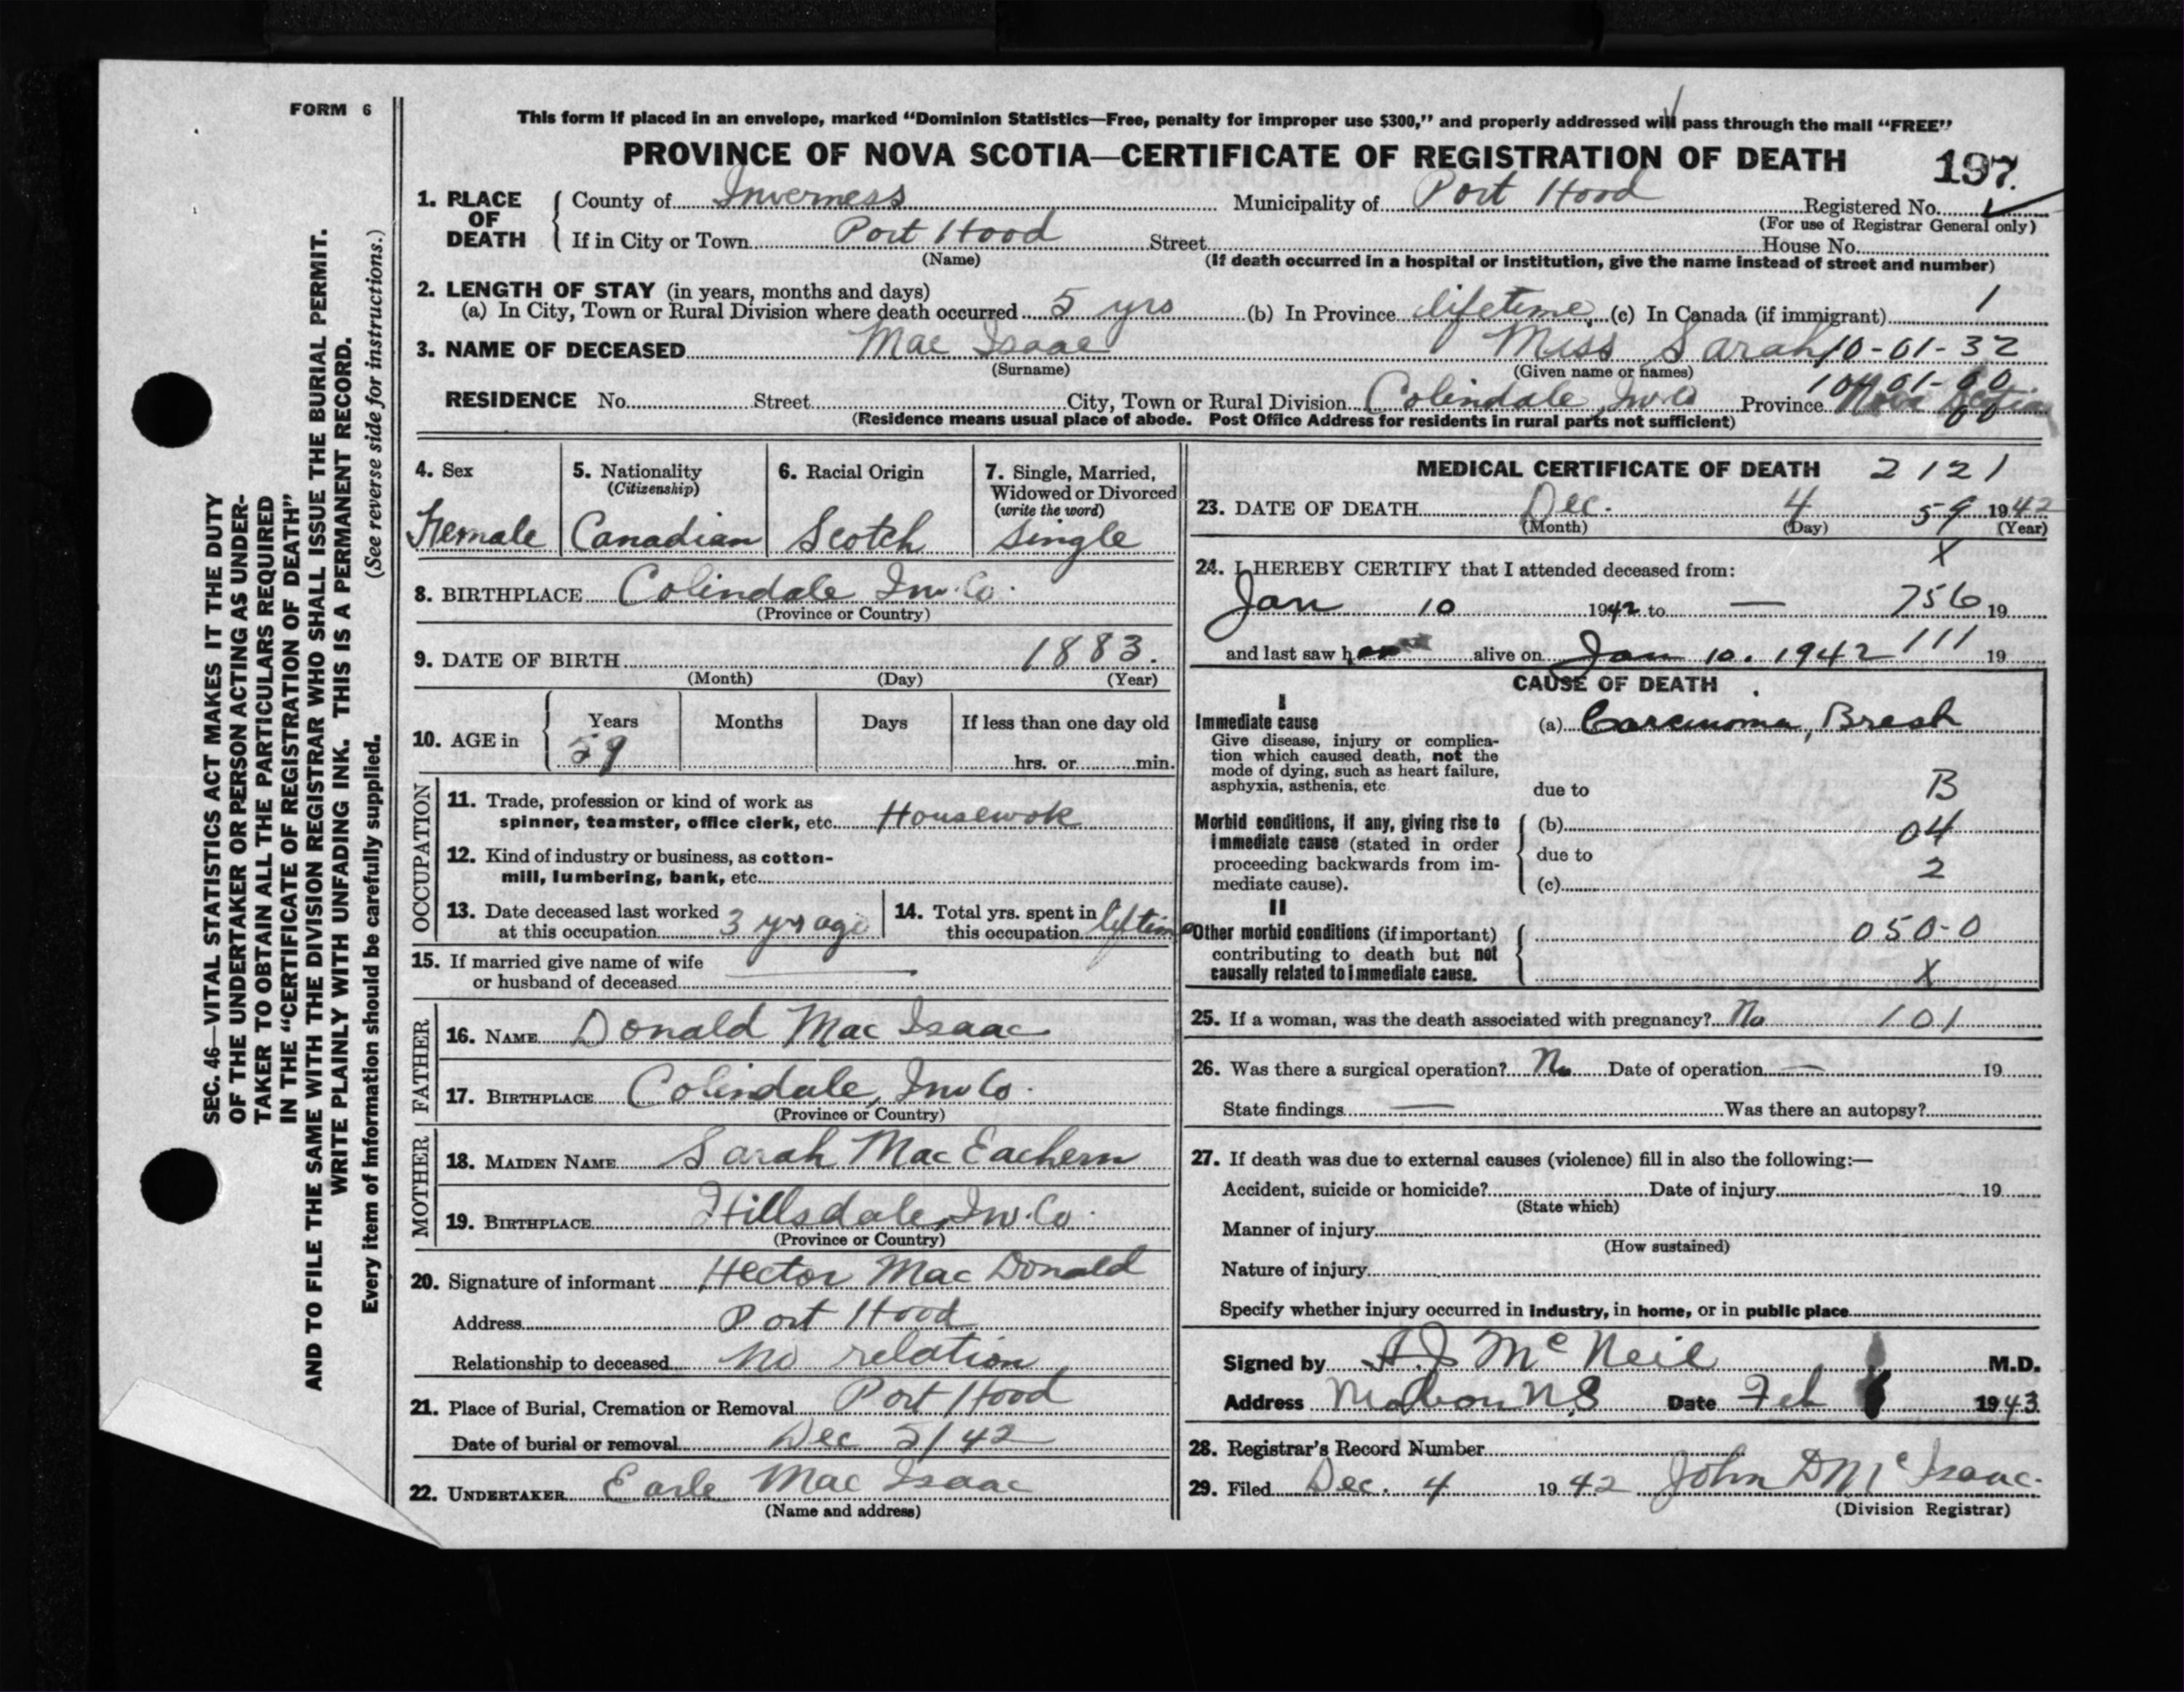 FORM 6
This form if placed in an envelope, marked "Dominion Statistics—Free, penalty for improper use $300," and properly addressed will pass through the mail "FREE"
PROVINCE OF NOVA SCOTIA—CERTIFICATE OF REGISTRATION OF DEATH 197.
1. PLACE OF DEATH County of Inverness Municipality of Port Hood Registered No.
(For use of Registrar General only)
If in City or Town Port Hood Street House No.
(Name) (If death occurred in a hospital or institution, give the name instead of street and number)
2. LENGTH OF STAY (in years, months and days)
(a) In City, Town or Rural Division where death occurred 5 yrs (b) In Province lifetime (c) In Canada (if immigrant) 1
3. NAME OF DECEASED Mac Isaac Miss Sarah 10-01-32
(Surname) (Given name or names)
RESIDENCE No. Street City, Town or Rural Division Colindale Inv Co Province Nova Scotia
(Residence means usual place of abode. Post Office Address for residents in rural parts not sufficient)
SEC. 46—VITAL STATISTICS ACT MAKES IT THE DUTY
OF THE UNDERTAKER OR PERSON ACTING AS UNDER-
TAKER TO OBTAIN ALL THE PARTICULARS REQUIRED
IN THE "CERTIFICATE OF REGISTRATION OF DEATH"
AND TO FILE THE SAME WITH THE DIVISION REGISTRAR WHO SHALL ISSUE THE BURIAL PERMIT.
WRITE PLAINLY WITH UNFADING INK. THIS IS A PERMANENT RECORD.
Every item of information should be carefully supplied. (See reverse side for instructions.)
4. Sex 5. Nationality 6. Racial Origin 7. Single, Married,
(Citizenship) Widowed or Divorced
(write the word)
Female Canadian Scotch Single
8. BIRTHPLACE Colindale Inv. Co.
(Province or Country)
9. DATE OF BIRTH 1883.
(Month) (Day) (Year)
10. AGE in Years Months Days If less than one day old
59 hrs. or min.
OCCUPATION
11. Trade, profession or kind of work as
spinner, teamster, office clerk, etc. Housewok
12. Kind of industry or business, as cotton-
mill, lumbering, bank, etc.
13. Date deceased last worked
at this occupation 3 yrs ago
14. Total yrs. spent in
this occupation liftime
15. If married give name of wife
or husband of deceased
FATHER
16. NAME Donald Mac Isaac
17. BIRTHPLACE Colindale, Inv Co.
(Province or Country)
MOTHER
18. MAIDEN NAME Sarah Mac Eachern
19. BIRTHPLACE Hillsdale, Inv. Co.
(Province or Country)
20. Signature of informant Hector Mac Donald
Address Port Hood
Relationship to deceased No relation
21. Place of Burial, Cremation or Removal Port Hood
Date of burial or removal Dec 5/42
22. UNDERTAKER Earle Mac Isaac
(Name and address)
MEDICAL CERTIFICATE OF DEATH 2121
23. DATE OF DEATH Dec. 4 59 1942
(Month) (Day) (Year)
X
24. I HEREBY CERTIFY that I attended deceased from:
Jan 10 1942 to — 756 19
and last saw her alive on Jan 10. 1942 111 19
CAUSE OF DEATH
I
Immediate cause (a) Carcinoma, Breast
Give disease, injury or complica-
tion which caused death, not the
mode of dying, such as heart failure,
asphyxia, asthenia, etc
due to B
Morbid conditions, if any, giving rise to
immediate cause (stated in order
proceeding backwards from im-
mediate cause).
(b) 04
due to 2
(c)
II
Other morbid conditions (if important) 050-0
contributing to death but not
causally related to immediate cause. X
25. If a woman, was the death associated with pregnancy? No 101
26. Was there a surgical operation? No Date of operation — 19
State findings — Was there an autopsy?
27. If death was due to external causes (violence) fill in also the following:—
Accident, suicide or homicide? Date of injury 19
(State which)
Manner of injury
(How sustained)
Nature of injury
Specify whether injury occurred in industry, in home, or in public place
Signed by A.J McNeil M.D.
Address Mabou N.S Date Feb 1943
28. Registrar's Record Number
29. Filed Dec. 4 1942 John D McIsaac.
(Division Registrar)